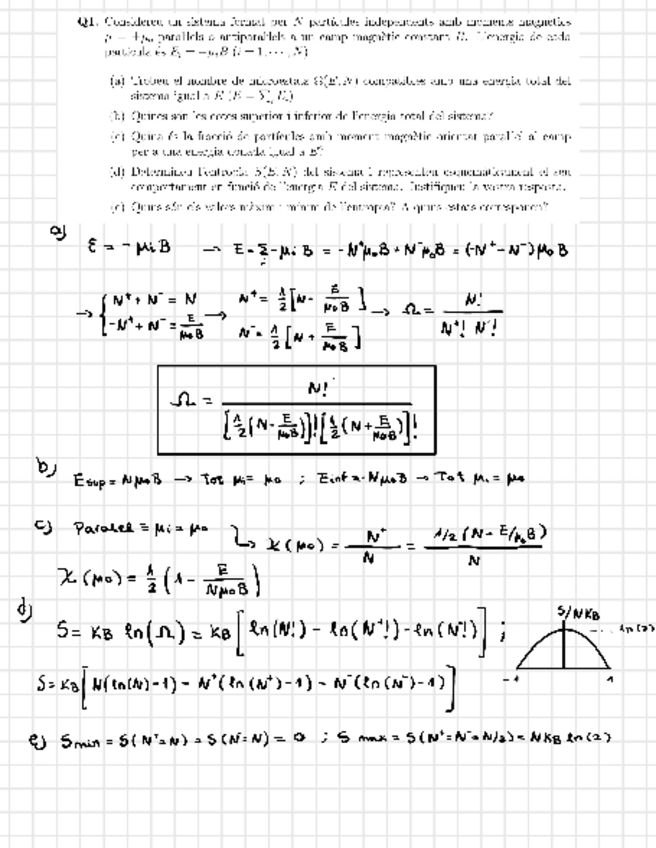 Q1. Considereu un sistema format per N partícules independents amb moments magnètics
μ = ±μ₀ paral·lels o antiparal·lels a un camp magnètic constant B. L'energia de cada
partícula és Eᵢ = −μᵢB (i = 1, · · · , N)
(a) Trobeu el nombre de microestats Ω(E, N) compatibles amb una energia total del
sistema igual a E (E = Σᵢ Eᵢ)
(b) Quines són les cotes superior i inferior de l'energia total del sistema?
(c) Quina és la fracció de partícules amb moment magnètic orientat paral·lel al camp
per a una energia donada igual a E?
(d) Determineu l'entropia S(E, N) del sistema i representeu esquemàticament el seu
comportament en funció de l'energia E del sistema. Justifiqueu la vostra resposta.
(e) Quins són els valors màxim i mínim de l'entropia? A quins estats corresponen?
a) ε = − μi B → E = Σᵢ − μi B = − N⁺μ₀B + N⁻μ₀B = (−N⁺ − N⁻) μ₀ B
→ { N⁺ + N⁻ = N ; −N⁺ + N⁻ = E/μ₀B → N⁺ = 1/2 [N − E/μ₀B] ; N⁻ = 1/2 [N + E/μ₀B] → Ω = N! / N⁺! N⁻!
Ω = N! / [1/2 (N − E/μ₀B)]! [1/2 (N + E/μ₀B)]!
b) Esup = Nμ₀B → Tot μi = μ₀ ; Einf = − Nμ₀B → Tot μi = μ₀
c) Paralel ≡ μi = μ₀ ↳ χ(μ₀) = N⁺/N = 1/2 (N − E/μ₀B) / N
χ(μ₀) = 1/2 (1 − E/Nμ₀B)
d) S = KB ln(Ω) = KB [ln(N!) − ln(N⁺!) − ln(N⁻!)] ;
S/NKB
ln(2)
−1 1
S = KB [N(ln(N)−1) − N⁺(ln(N⁺)−1) − N⁻(ln(N⁻)−1)]
e) Smin = S(N⁺=N) = S(N⁻=N) = 0 ; S max = S(N⁺=N⁻=N/2) = NKB ln(2)